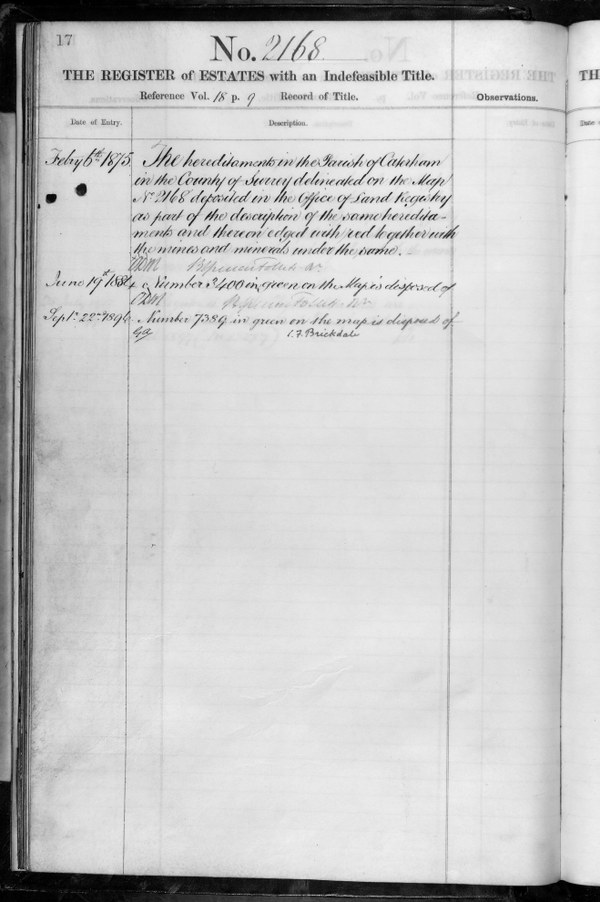 17
No. 2168
THE REGISTER of ESTATES with an Indefeasible Title.
Reference Vol. 18 p. 9 Record of Title.
Observations.
Date of Entry. Description.
Feby 6th 1875. The hereditaments in the Parish of Caterham
in the County of Surrey delineated on the Map
No 2168 deposited in the Office of Land Registry
as part of the description of the same heredita-
ments and thereon edged with red together with
the mines and minerals under the same.
Follett
June 19th 1884 Number 3400 in green on the Map is disposed of
Follett
Sept. 22nd Number 7389 in green on the map is disposed of
Brickdale
TH
Date